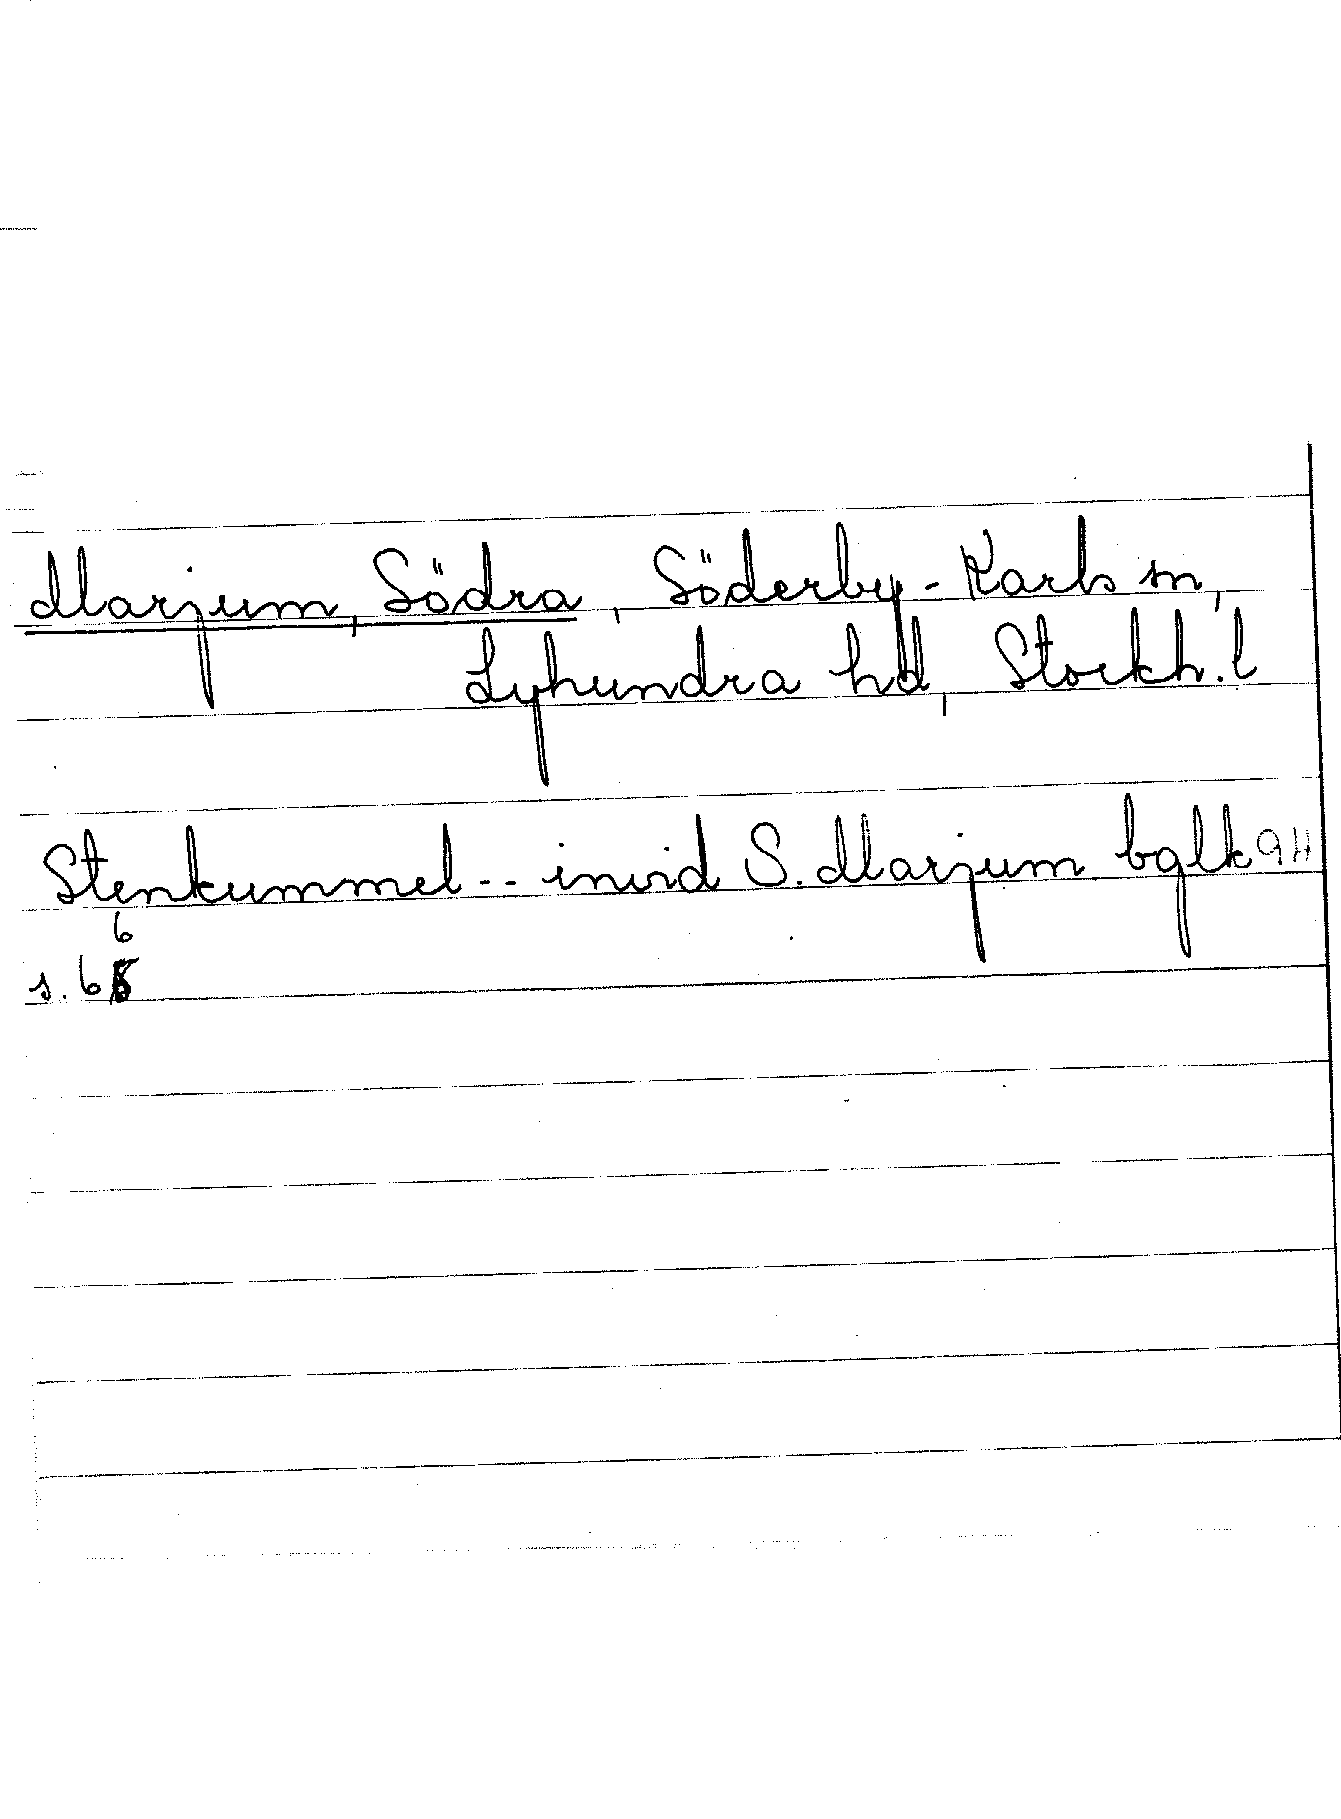 Marjum, Södra, Söderby-Karls sn,
Lyhundra hd, Stockh. l
Stenkummel -- invid S. Marjum bglk 9H
6
s. 65